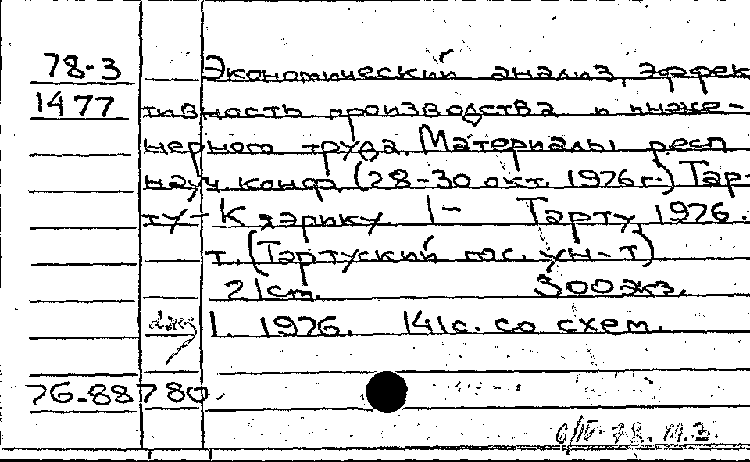 78-3 Экономический анализ, эффек
1477 тивность производства и инже-
нерного труда. Материалы респ.
науч. конф. (28-30 окт. 1976г.) Тар-
ту - Кяэрику 1- Тарту, 1976.
т. (Тартуский гос. ун-т)
21см. 300экз.
1. 1976. 141с. со схем.
76-88780
6/IV-78. М.З.